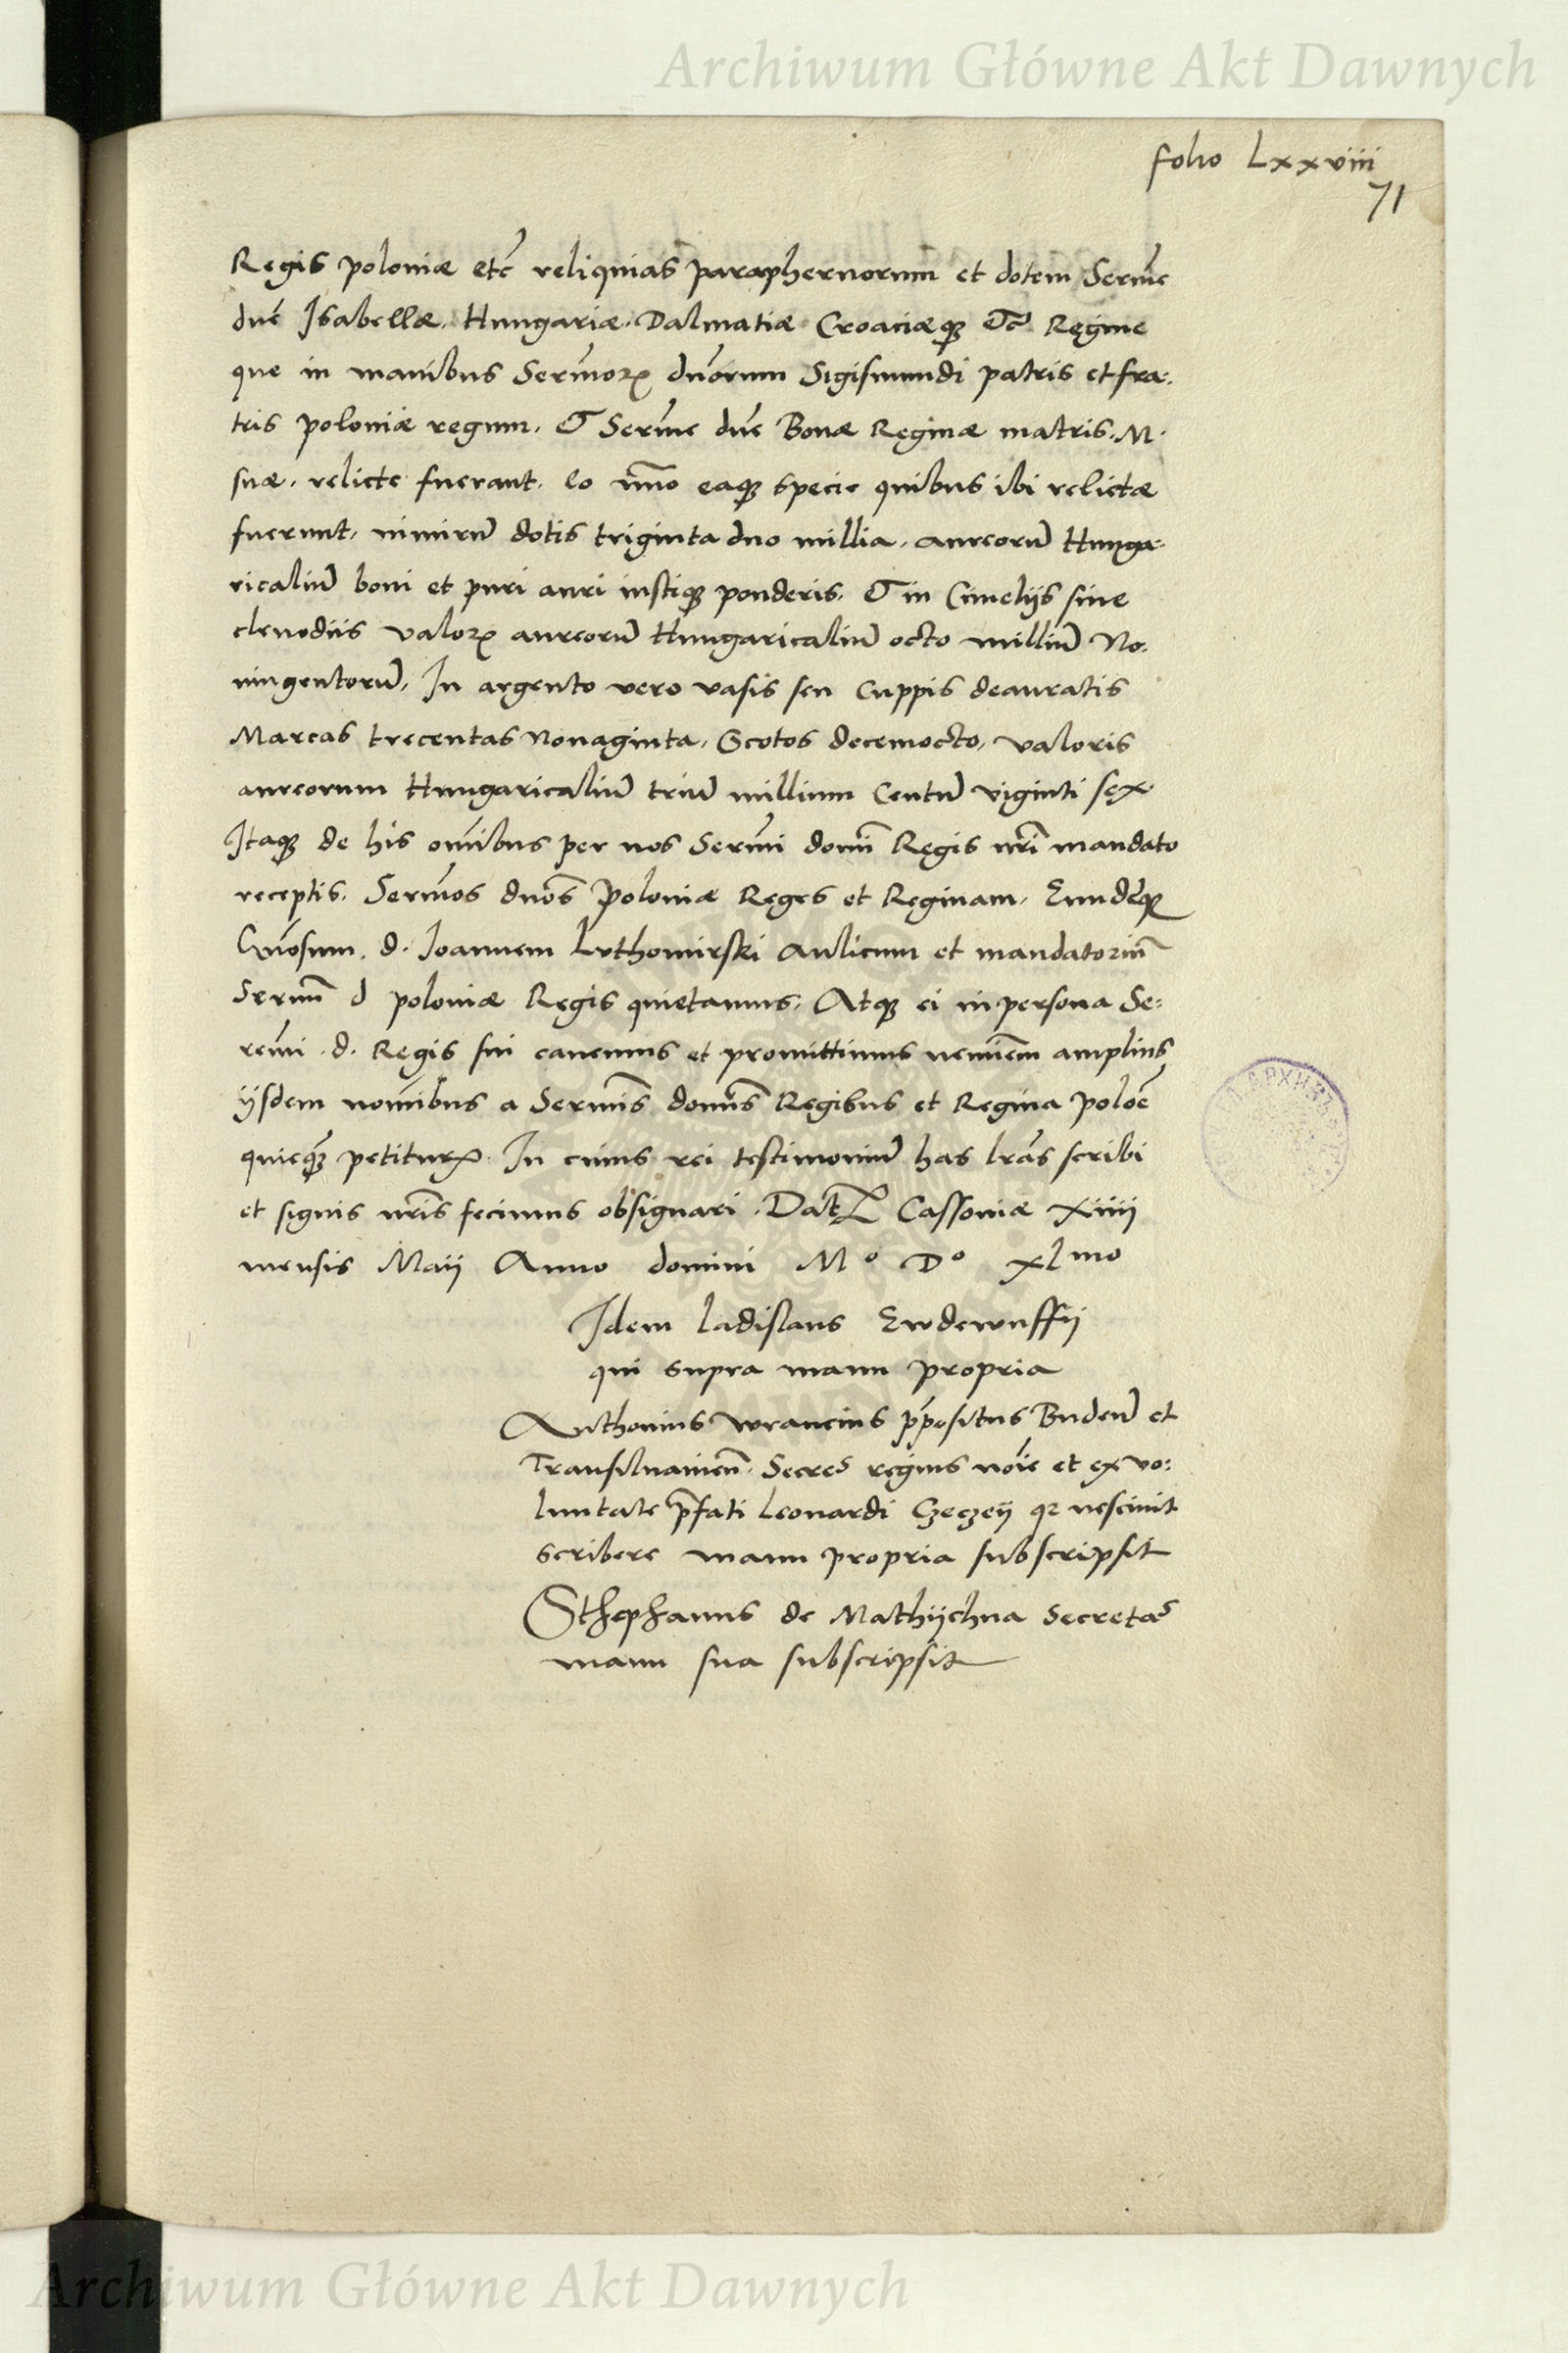 Archiwum Główne Akt Dawnych
folio Lxxviii
71
Regis poloniæ etc̃ reliquias paraphernorum et dotem Serm̃e
dne̅ Isabellæ. Hungariæ. Dalmatiæ Croaciæq3 &c̃ Regine
que in manibus Serm̃orꝝ dn̅orum Sigismundi patris et fra:
tris poloniæ regum. & Serm̃e dne̅ Bonæ Reginæ matris. M.
suæ. relicte fuerant. eo nn̅o eaq3 specie quibus ibi relictæ
fuerunt, nimirũ dotis triginta duo millia, aureorũ Hunga:
ricaliũ boni et puri auri iustiq3 ponderis. & in Cimelijs siue
clenodiis valorꝝ aureorũ Hungaricaliũ octo milliũ No:
ningentorũ, In argento vero vasis seu cuppis deauratis
Marcas trecentas Nonaginta, Scotos decemocto, valoris
aureorum Hungaricaliũ triũ millium Centũ viginti sex
Itaq3 de his om̅ibus per nos Serm̅i domi̅ Regis nr̅i mandato
receptis. Serm̅os dno̅s Poloniæ Reges et Reginam, Eundẽq3
Gn̅osum. d. Joannem Luthomirski Aulicum et mandatoriu̅
Sermi̅ d poloniæ Regis quietamus, Atq3 ei in persona Se:
ren̅i . d. Regis sui cauemus et promittimus nemine̅m amplius
ijsdem nom̅ibus a Serm̅is dom̅is Regibus et Regina polo̅e
quicq3̃ petiturꝝ In cuius rei testimoniũ has lr̅as scribi
et signis nr̅is fecimus obsignari . Datꝭ Cassoniæ xiiii
mensis Maij Anno domini Mº Dº xlmo
Idem Ladislaus Ewdewnffij
qui supra manu propria
Anthonius wrancius p̅positus Budeñ et
Transiluanien̅. Secres regius no̅ie et ex vo:
luntate p̅fati Leonardi Czeczeij qꝛ nesciuit
scribere manu propria subscripsit
Sthephanus de Mathijchna Secretas
manu sua subscripsit
Archiwum Główne Akt Dawnych